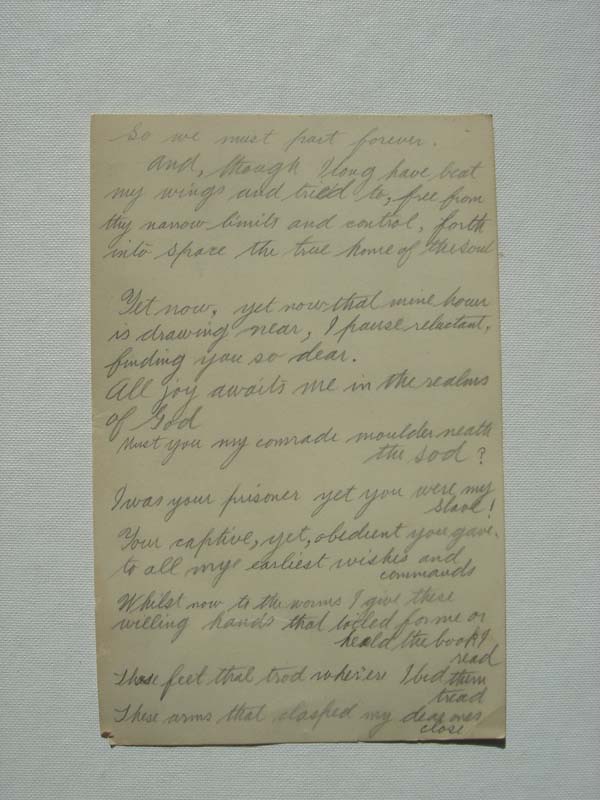 So we must part forever.
And, though I long have beat
my wings and tried to, free from
thy narrow limits and control, forth
into space the true home of the soul
Yet now, yet now that mine hour
is drawing near, I pause reluctant,
finding you so dear.
All joy awaits me in the realms
of God
Must you my comrade moulder neath
the sod?
I was your prisoner yet you were my
slave!
Your captive, yet, obedient you gave
to all my earliest wishes and
commands
Whilst now to the worms I give these
willing hands that toiled for me or
held the book I
read
Those feet that trod wher'ere I bid them
tread
These arms that clasped my dear ones
close